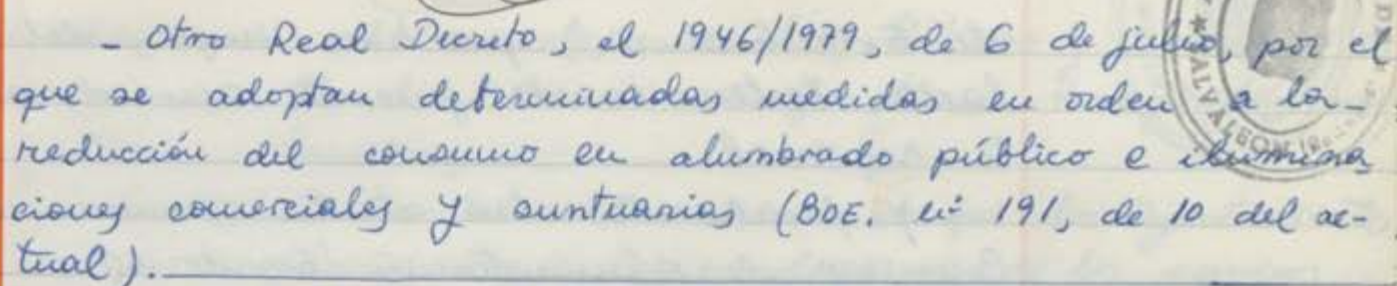 - Otro Real Decreto, el 1946/1979, de 6 de julio, por el
que se adoptan determinadas medidas en orden a la
reducción del consumo en alumbrado público e ilumina
ciones comerciales y suntuarias (BOE. nº 191, de 10 del ac-
tual).